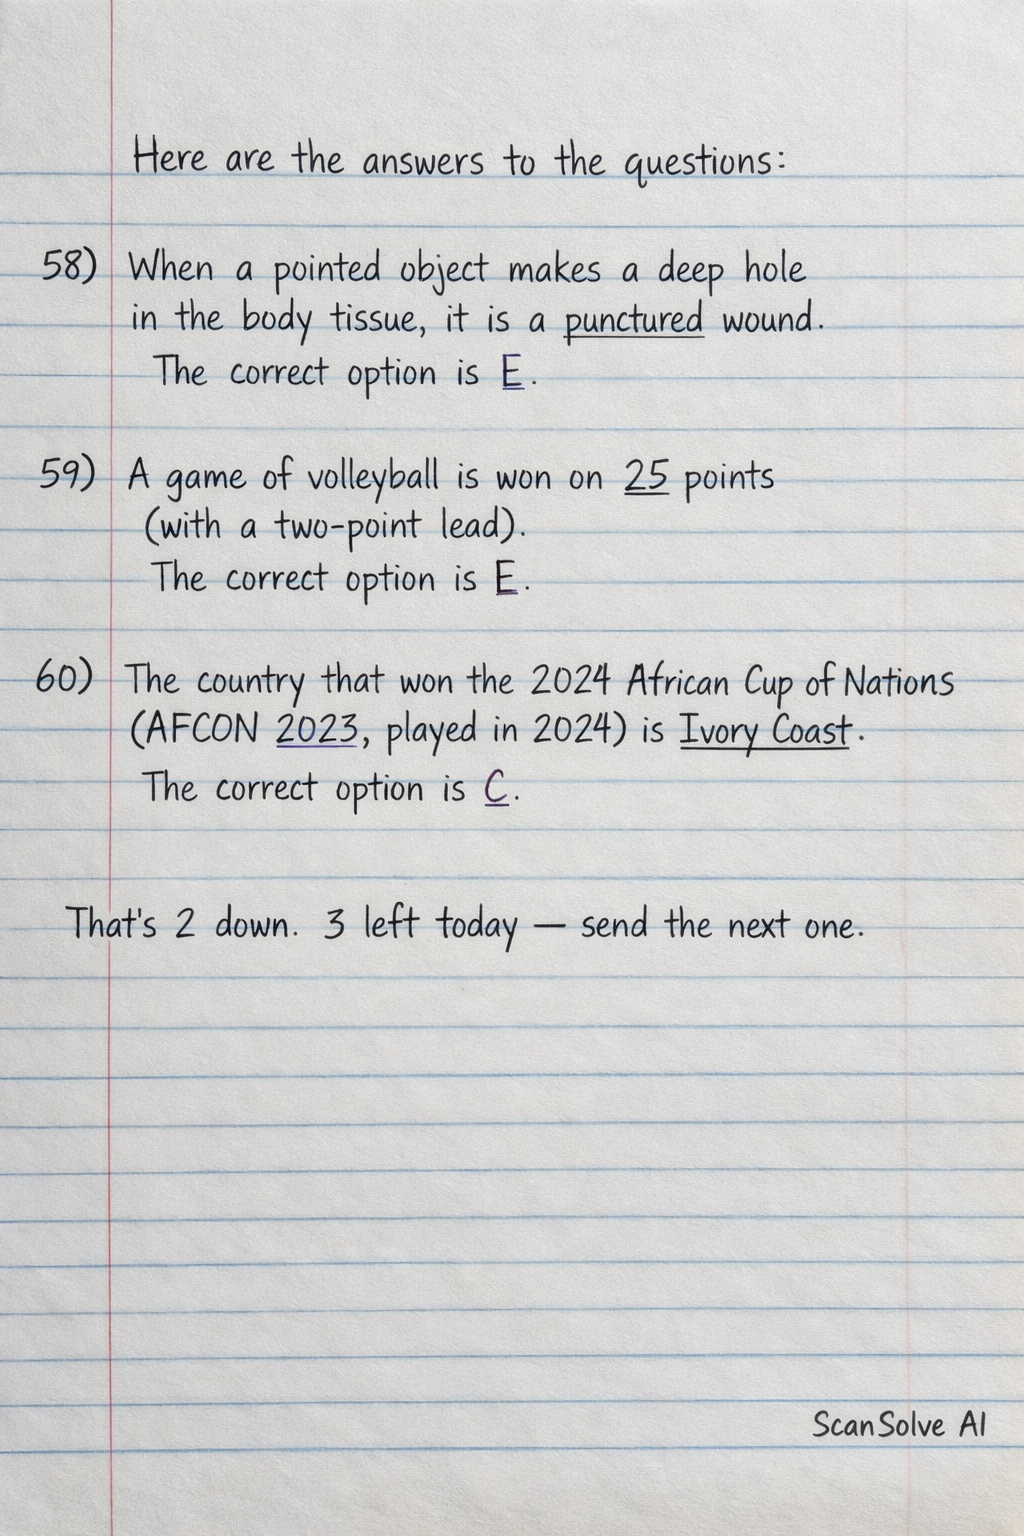 Here are the answers to the questions:
58) When a pointed object makes a deep hole
in the body tissue, it is a punctured wound.
The correct option is E.
59) A game of volleyball is won on 25 points
(with a two-point lead).
The correct option is E.
60) The country that won the 2024 African Cup of Nations
(AFCON 2023, played in 2024) is Ivory Coast.
The correct option is C.
That's 2 down. 3 left today — send the next one.
ScanSolve AI